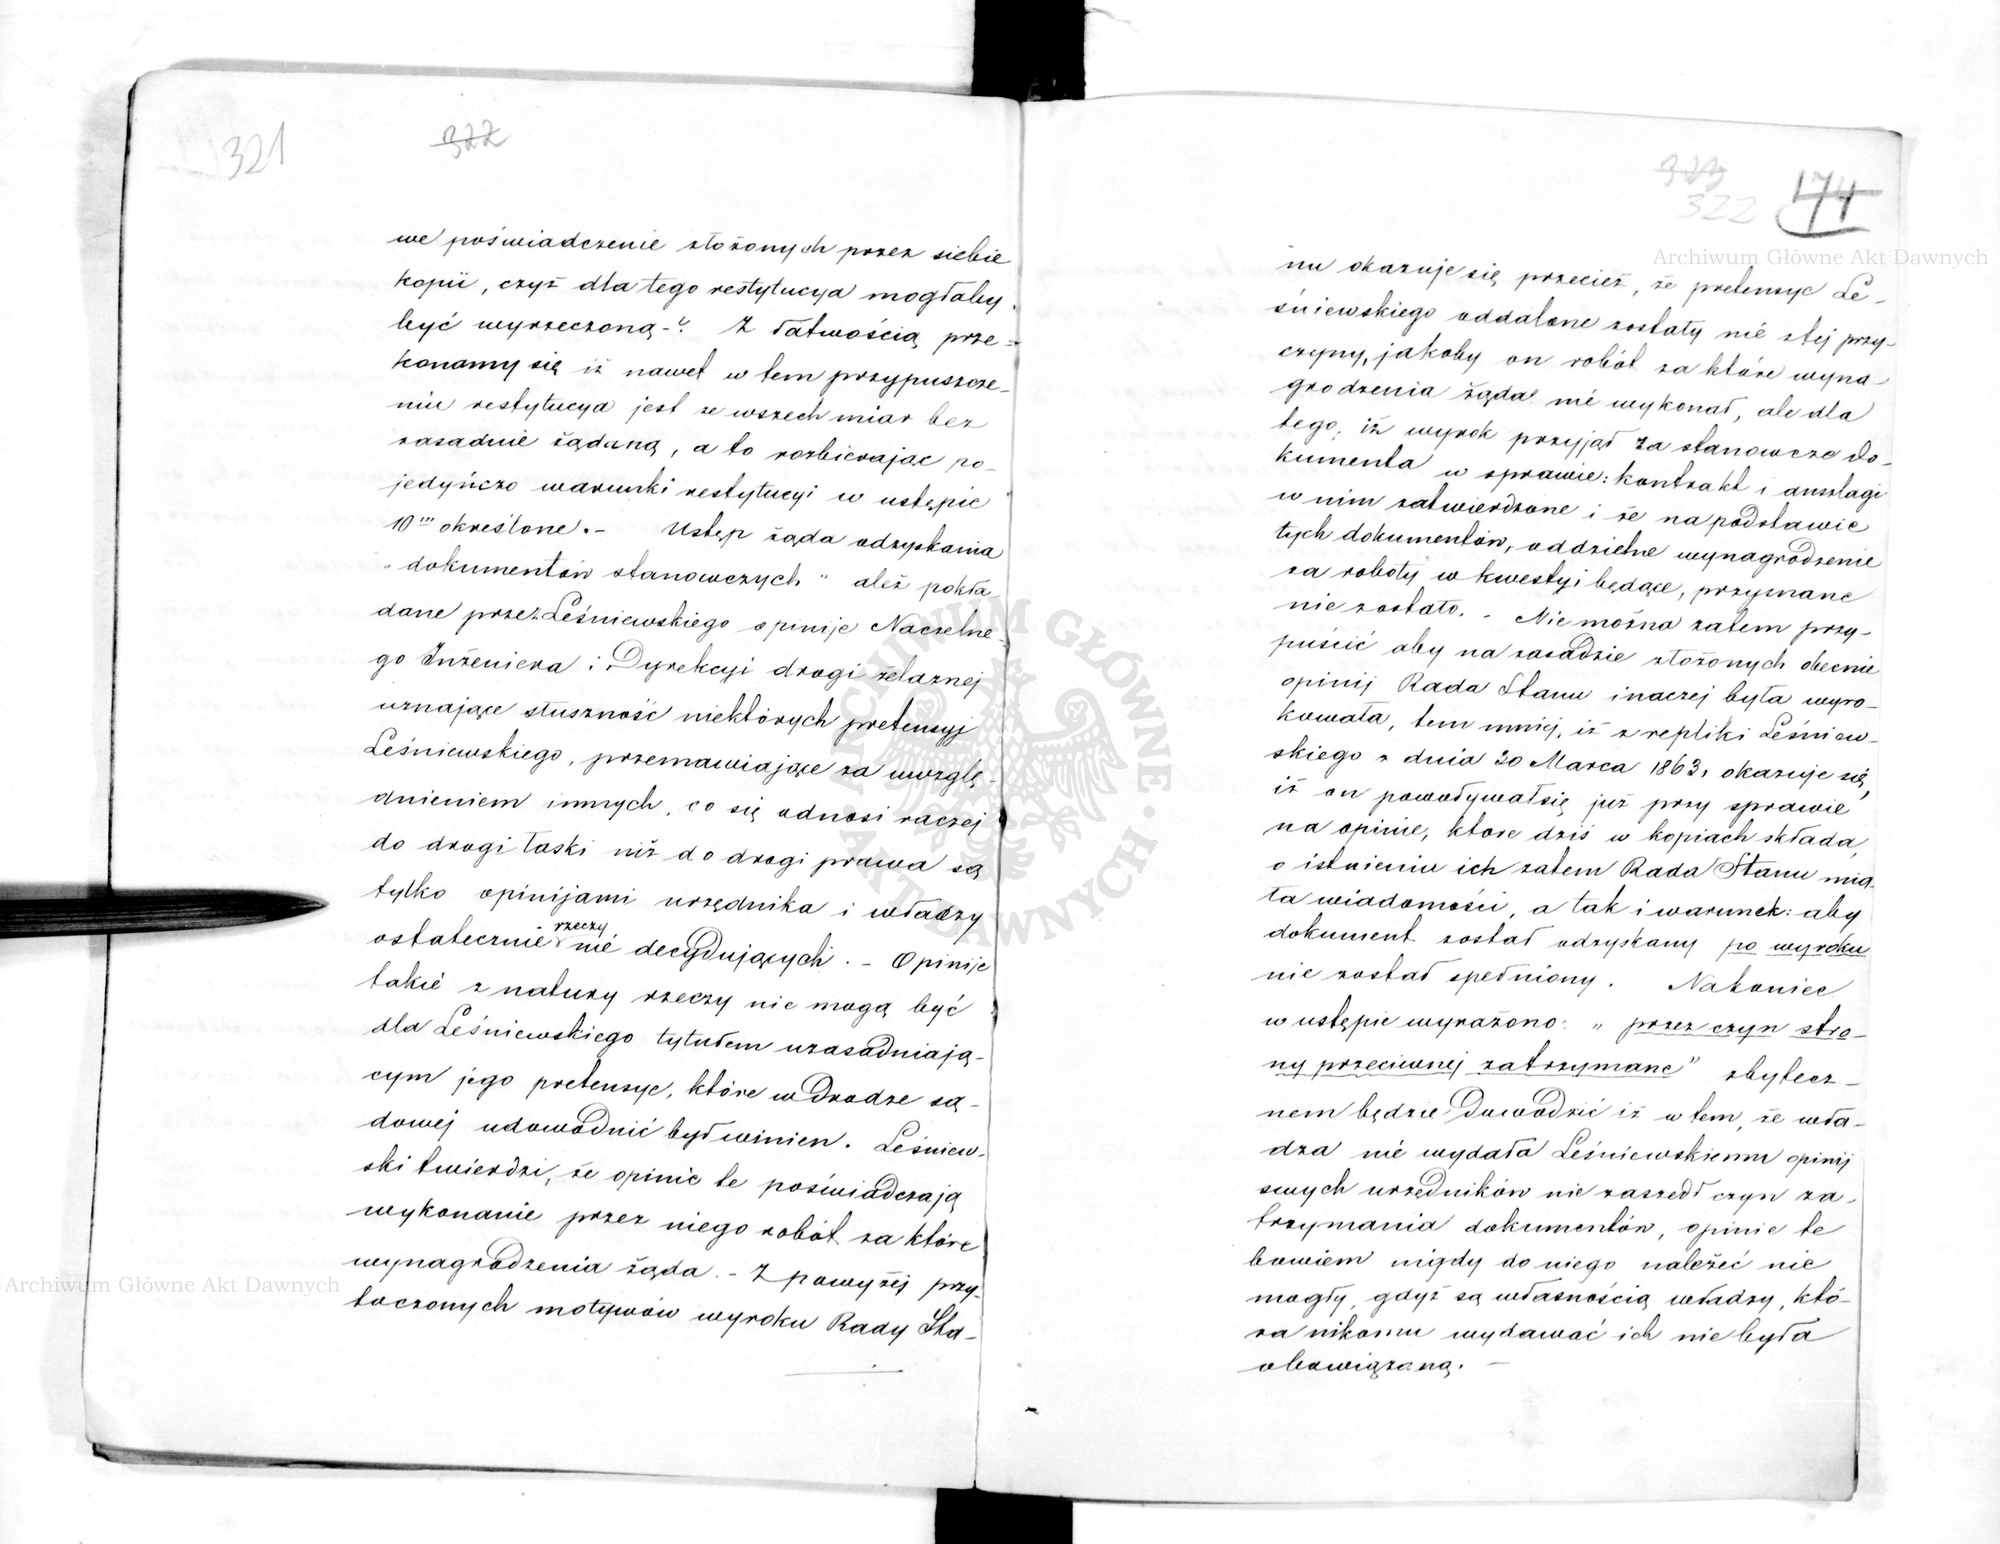 321
322
we poświadczenie złożonych przez siebie
kopii, czyż dla tego restytucya mogłaby
być wyrzeczoną -? Z łatwością prze=
konamy się iż nawet w tem przypuszcze-
niu restytucya jest ze wszech miar bez
zasadnie żądaną, a to rozbierając po-
jedyńczo warunki restytucyi w ustępie
10ᵐ określone. - Ustęp żąda odzyskania
"dokumentów stanowczych" aleź pokła-
dane przez Leśniewskiego opinije Naczelne-
go Inżeniera i Dyrekcyi drogi żelaznej
uznające słuszność niektórych pretensyj
Leśniewskiego, przemawiające za uwzglę-
dnieniem innych, co się odnosi raczej
do drogi łaski niż do drogi prawa są
tylko opinijami urzędnika i władzy
rzeczy
ostatecznie nie decydujących. - Opinije
takie z natury rzeczy nie mogą być
dla Leśniewskiego tytułem uzasadniają-
cym jego pretensye, które w drodze są-
dowej udowodnić był winien. Leśniew-
ski twierdzi, że opinie te poświadczają
wykonanie przez niego robót za które
wynagrodzenia żąda. - Z powyżej przy-
toczonych motywów wyroku Rady Sta-
323
322
174
nu okazuje się przecież, że pretensye Le-
śniewskiego oddalone zostały nie z tej przy-
czyny, jakoby on robót za które wyna-
grodzenia żąda nie wykonał, ale dla
tego, iż wyrok przyjął za stanowcze do-
kumenta w sprawie: kontrakt i anszlagi
w nim zatwierdzone i że na podstawie
tych dokumentów, oddzielne wynagrodzenie
za roboty w kwestyi będące, przyznane
nie zostało. - Nie można zatem przy-
puścić aby na zasadzie złożonych obecnie
opinij Rada Stanu inaczej była wyro-
kowała, tem mniej, iż z repliki Leśniew-
skiego z dnia 20 Marca 1863, okazuje się,
iż on powoływał się już przy sprawie
na opinie, które dziś w kopiach składa,
o istnieniu ich zatem Rada Stanu mia-
ła wiadomości, a tak i warunek: aby
dokument został odzyskany po wyroku
nie został spełniony. Nakoniec
w ustępie wyrażono: "przez czyn stro-
ny przeciwnej zatrzymane" zbytecz-
nem będzie dowodzić iż w tem, że wła-
dza nie wydała Leśniewskiemu opinij
swych urzędników nie zaszedł czyn za-
trzymania dokumentów, opinie te
bowiem nigdy do niego należeć nie
mogły, gdyż są własnością władzy, któ-
ra nikomu wydawać ich nie była
obowiązaną. -
Archiwum Główne Akt Dawnych
Archiwum Główne Akt Dawnych
ARCHIWUM GŁÓWNE AKT DAWNYCH